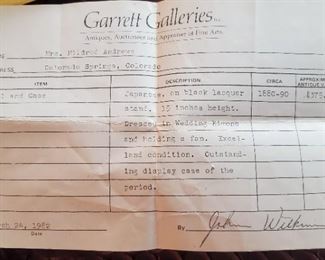 Garrett Galleries
Antiques, Auctioneer and Appraiser of Fine Arts.
Mrs. Mildred Andrews
RESS Colorado Springs, Colorado
ITEM DESCRIPTION CIRCA APPROXIM ANTIQUE V
l and Case Japanese, on black lacquer 1880-90
stand. 15 inches height.
Dressed in Wedding Kimono
and holding a fan. Excel-
land condition. Outstand-
ing display case of the
period.
rch 24, 1982
Date By John